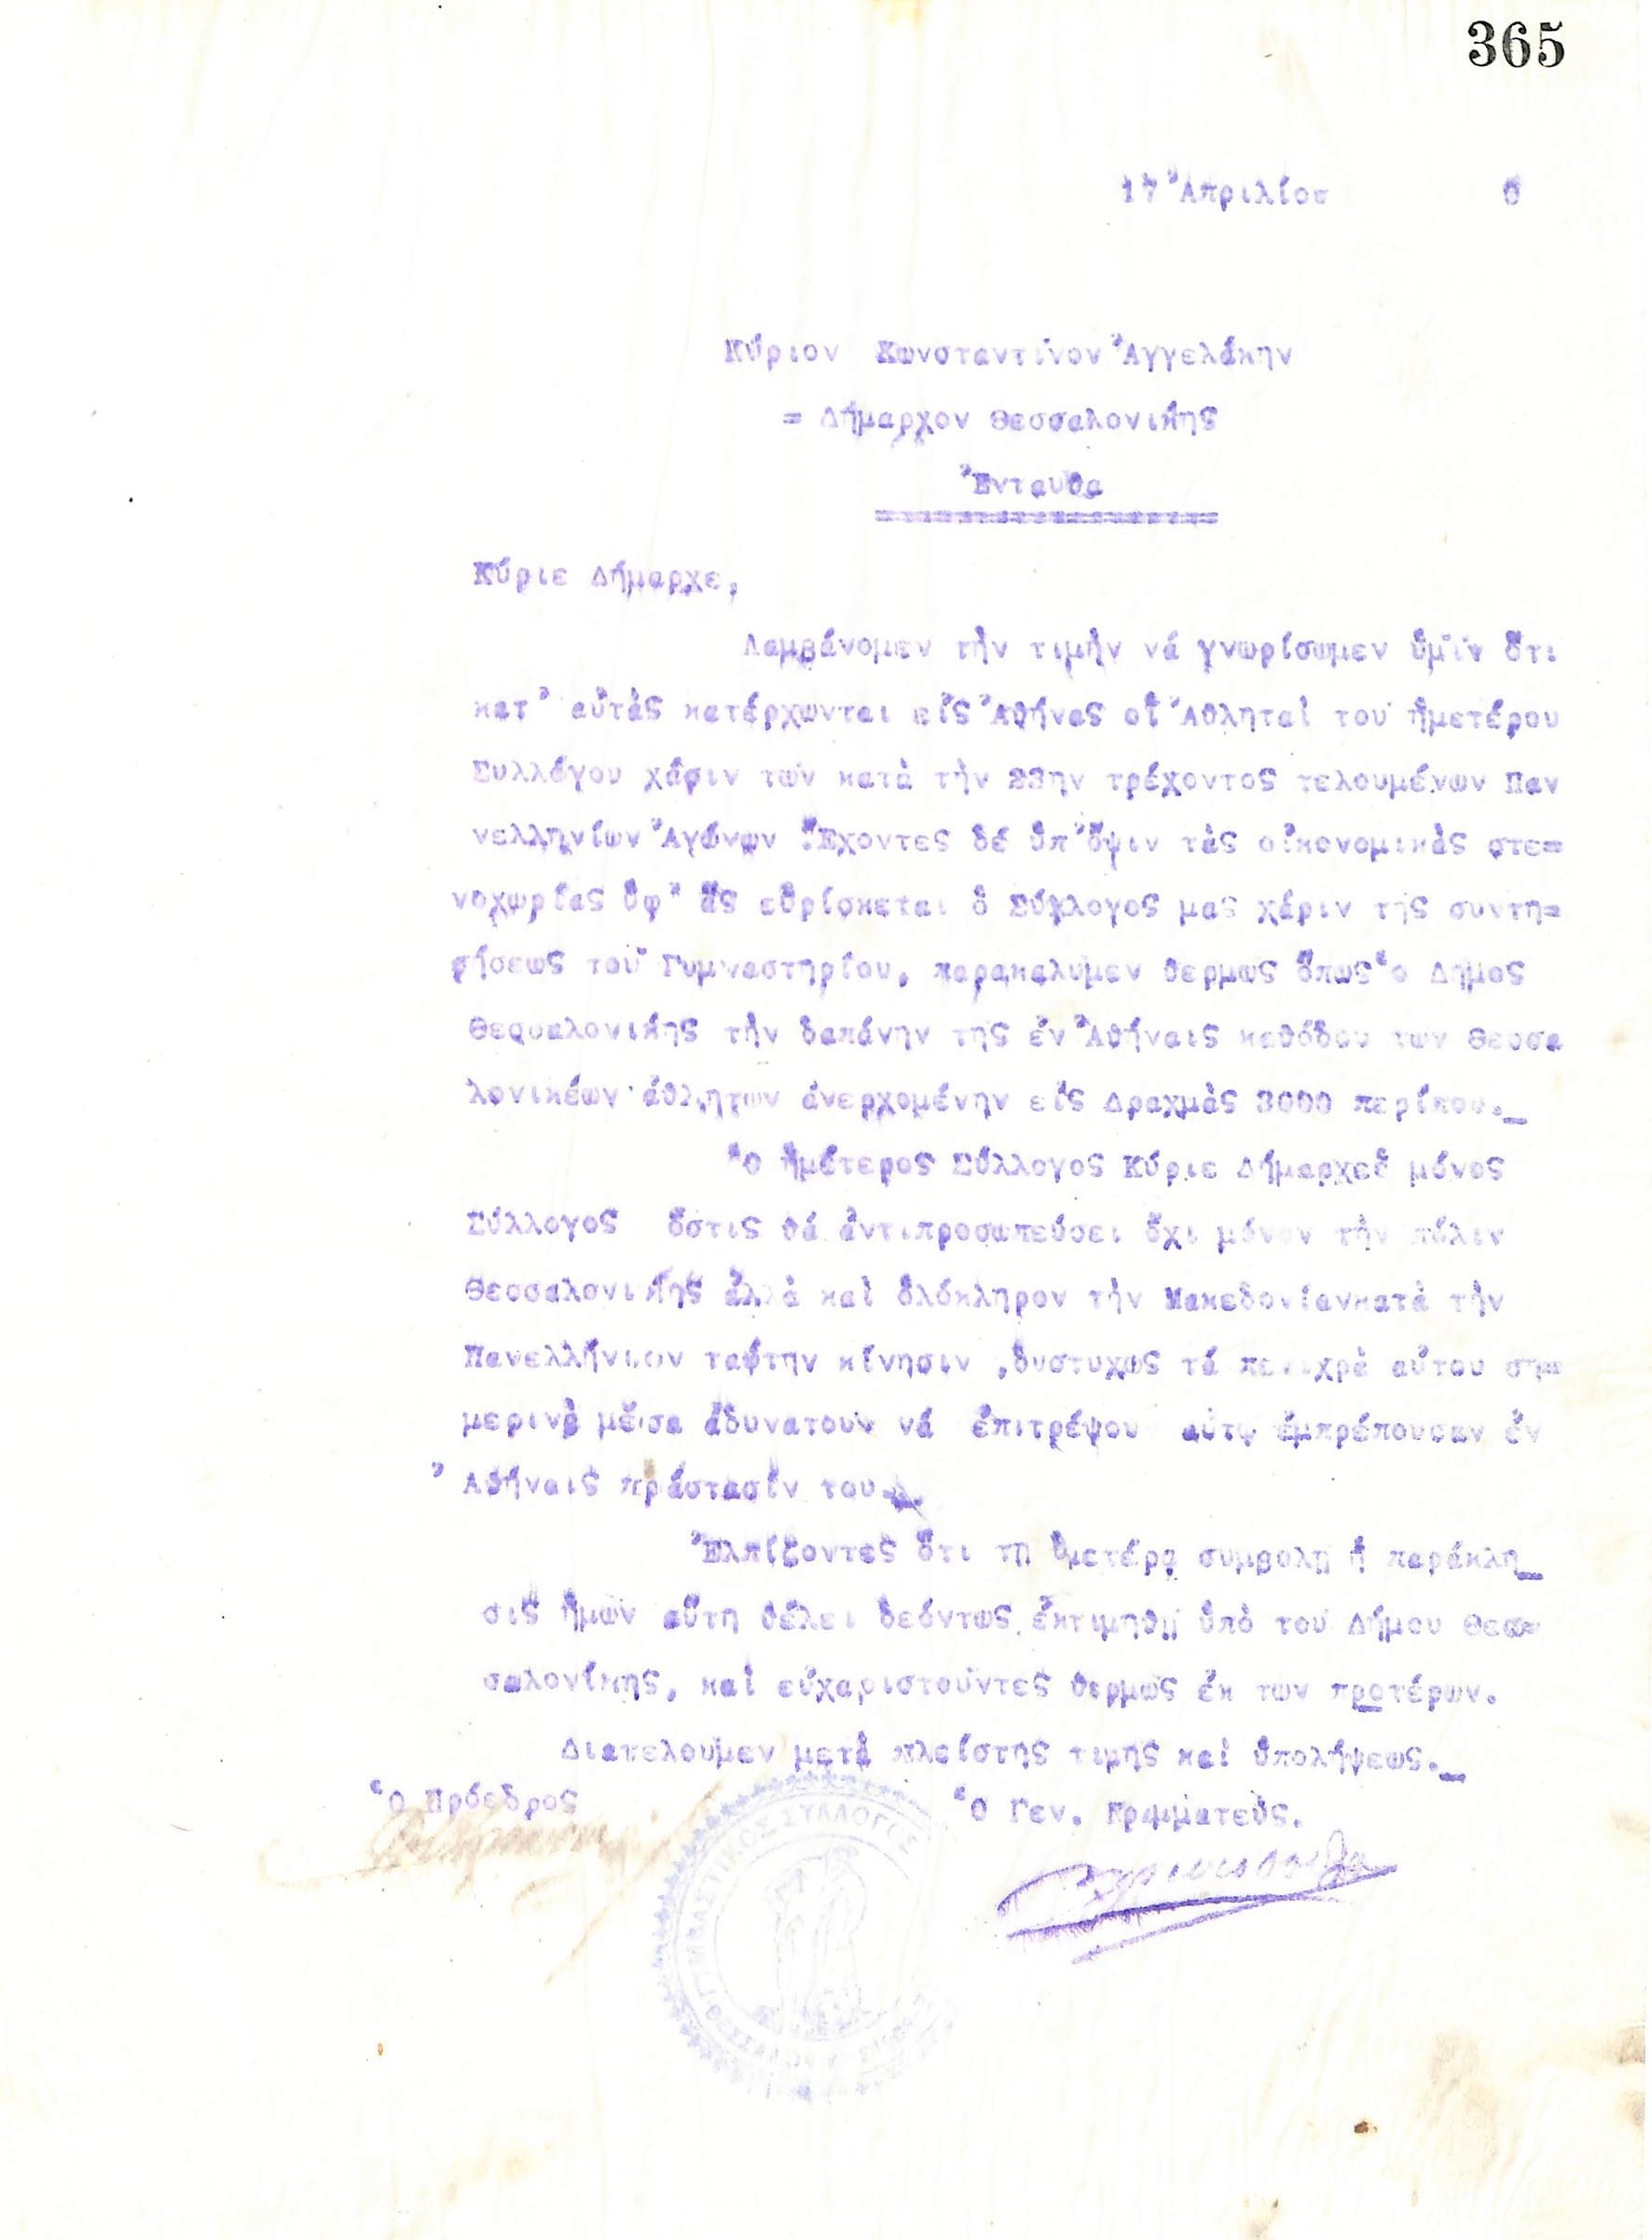 365
17 Ἀπριλίου 0
Κύριον Κωνσταντῖνον Ἀγγελάκην
= Δήμαρχον Θεσσαλονίκης
Ἐνταυθα
Κύριε Δήμαρχε,
Λαμβάνομεν τὴν τιμὴν νά γνωρίσωμεν ὑμῖν ὅτι
κατ' αὐτὰς κατέρχωνται εἰς Ἀθήνας οἱ Ἀθληταὶ του ἡμετέρου
Συλλόγου χάριν τῶν κατὰ τὴν 23ην τρέχοντος τελουμένων Παν
νελληνίων Ἀγώνων .Ἔχοντες δέ ὑπ' ὄψιν τὰς οἰκονομικὰς στε=
νοχωρίας ὑφ' ἃς εὑρίσκεται ὁ Σύλλογος μας χάριν τῆς συντη=
ρήσεως τοῦ Γυμναστηρίου, παρακαλυμεν θερμως ὅπως ὁ Δημος
Θεσσαλονίκης τὴν δαπάνην της ἐν Ἀθήναις καθόδου των Θεσσα
λονικέων ἀθλητων ἀνερχομένην εἰς Δραχμὰς 3000 περίπου._
Ὁ ἡμέτερος Σύλλογος Κύριε Δήμαρχεὁ μόνος
Σύλλογος ὅστις θά ἀντιπροσωπεύσει ὄχι μόνον τὴν πόλιν
Θεσσαλονίκης ἀλλὰ καὶ ὁλόκληρον τὴν Μακεδονίανκατὰ τὴν
Πανελλήνιον ταύτην κίνησιν ,δυστυχως τά πενιχρὰ αὐτου ση=
μερινὰ μέσα ἀδυνατουν νά ἐπιτρέψου αὐτῳ ἐμπρέπουσαν ἐν
Ἀθήναις πράστασίν του.
Ἐλπίζοντες ὅτι τη ὑμετέρᾳ συμβολῃ ἡ παράκλη_
σις ἡμῶν αὕτη θέλει δεόντως ἐκτιμηθῃ ὑπὸ τοῦ Δήμου Θεσ=
σαλονίκης, καὶ εὐχαριστοῦντες θερμῶς ἐκ των προτέρων.
Διατελουμεν μετὰ πλείστης τιμης καὶ ὑπολήψεως._
Ὁ Πρόεδρος Ὁ Γεν. Γραμματεὺς.
ΓΥΜΝΑΣΤΙΚΟΣ ΣΥΛΛΟΓΟΣ